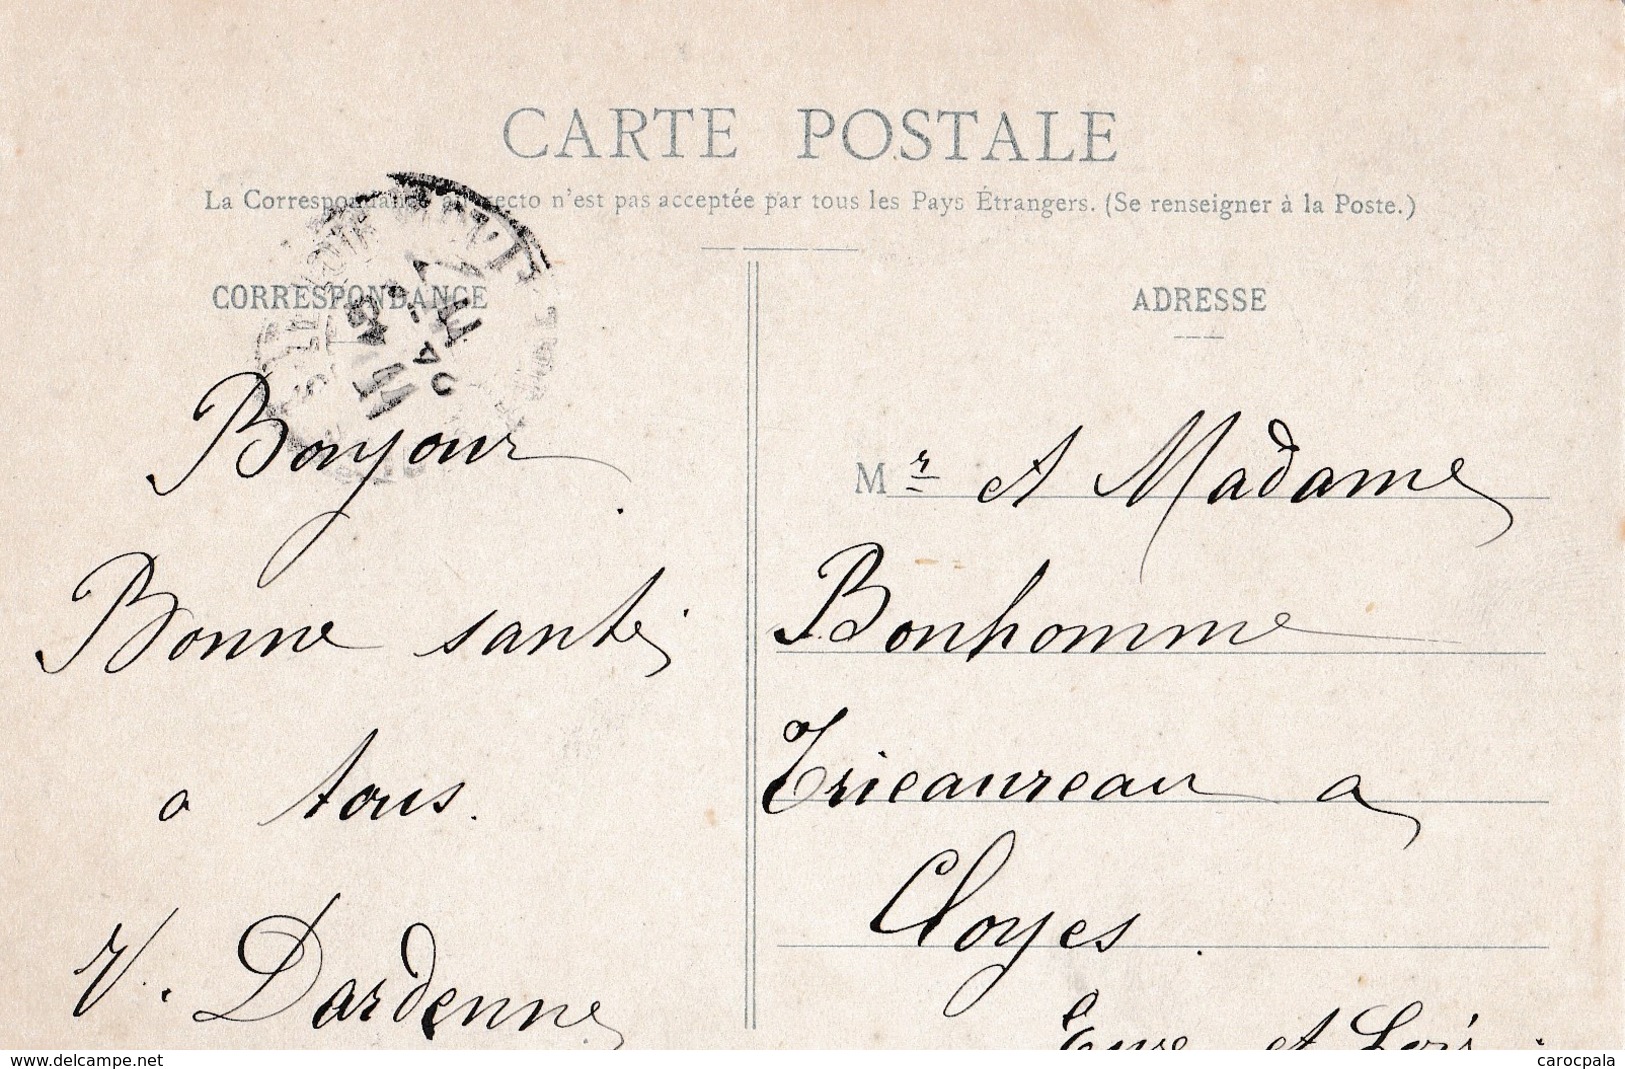 CARTE POSTALE
La Correspondance au recto n'est pas acceptée par tous les Pays Étrangers. (Se renseigner à la Poste.)
CORRESPONDANCE
Bonjour.
Bonne santé
a tous.
V. Dardenne
ADRESSE
Mr et Madame
Bonhomme
a
Cloyes.
Eure et Loir
www.delcampe.net
carocpala